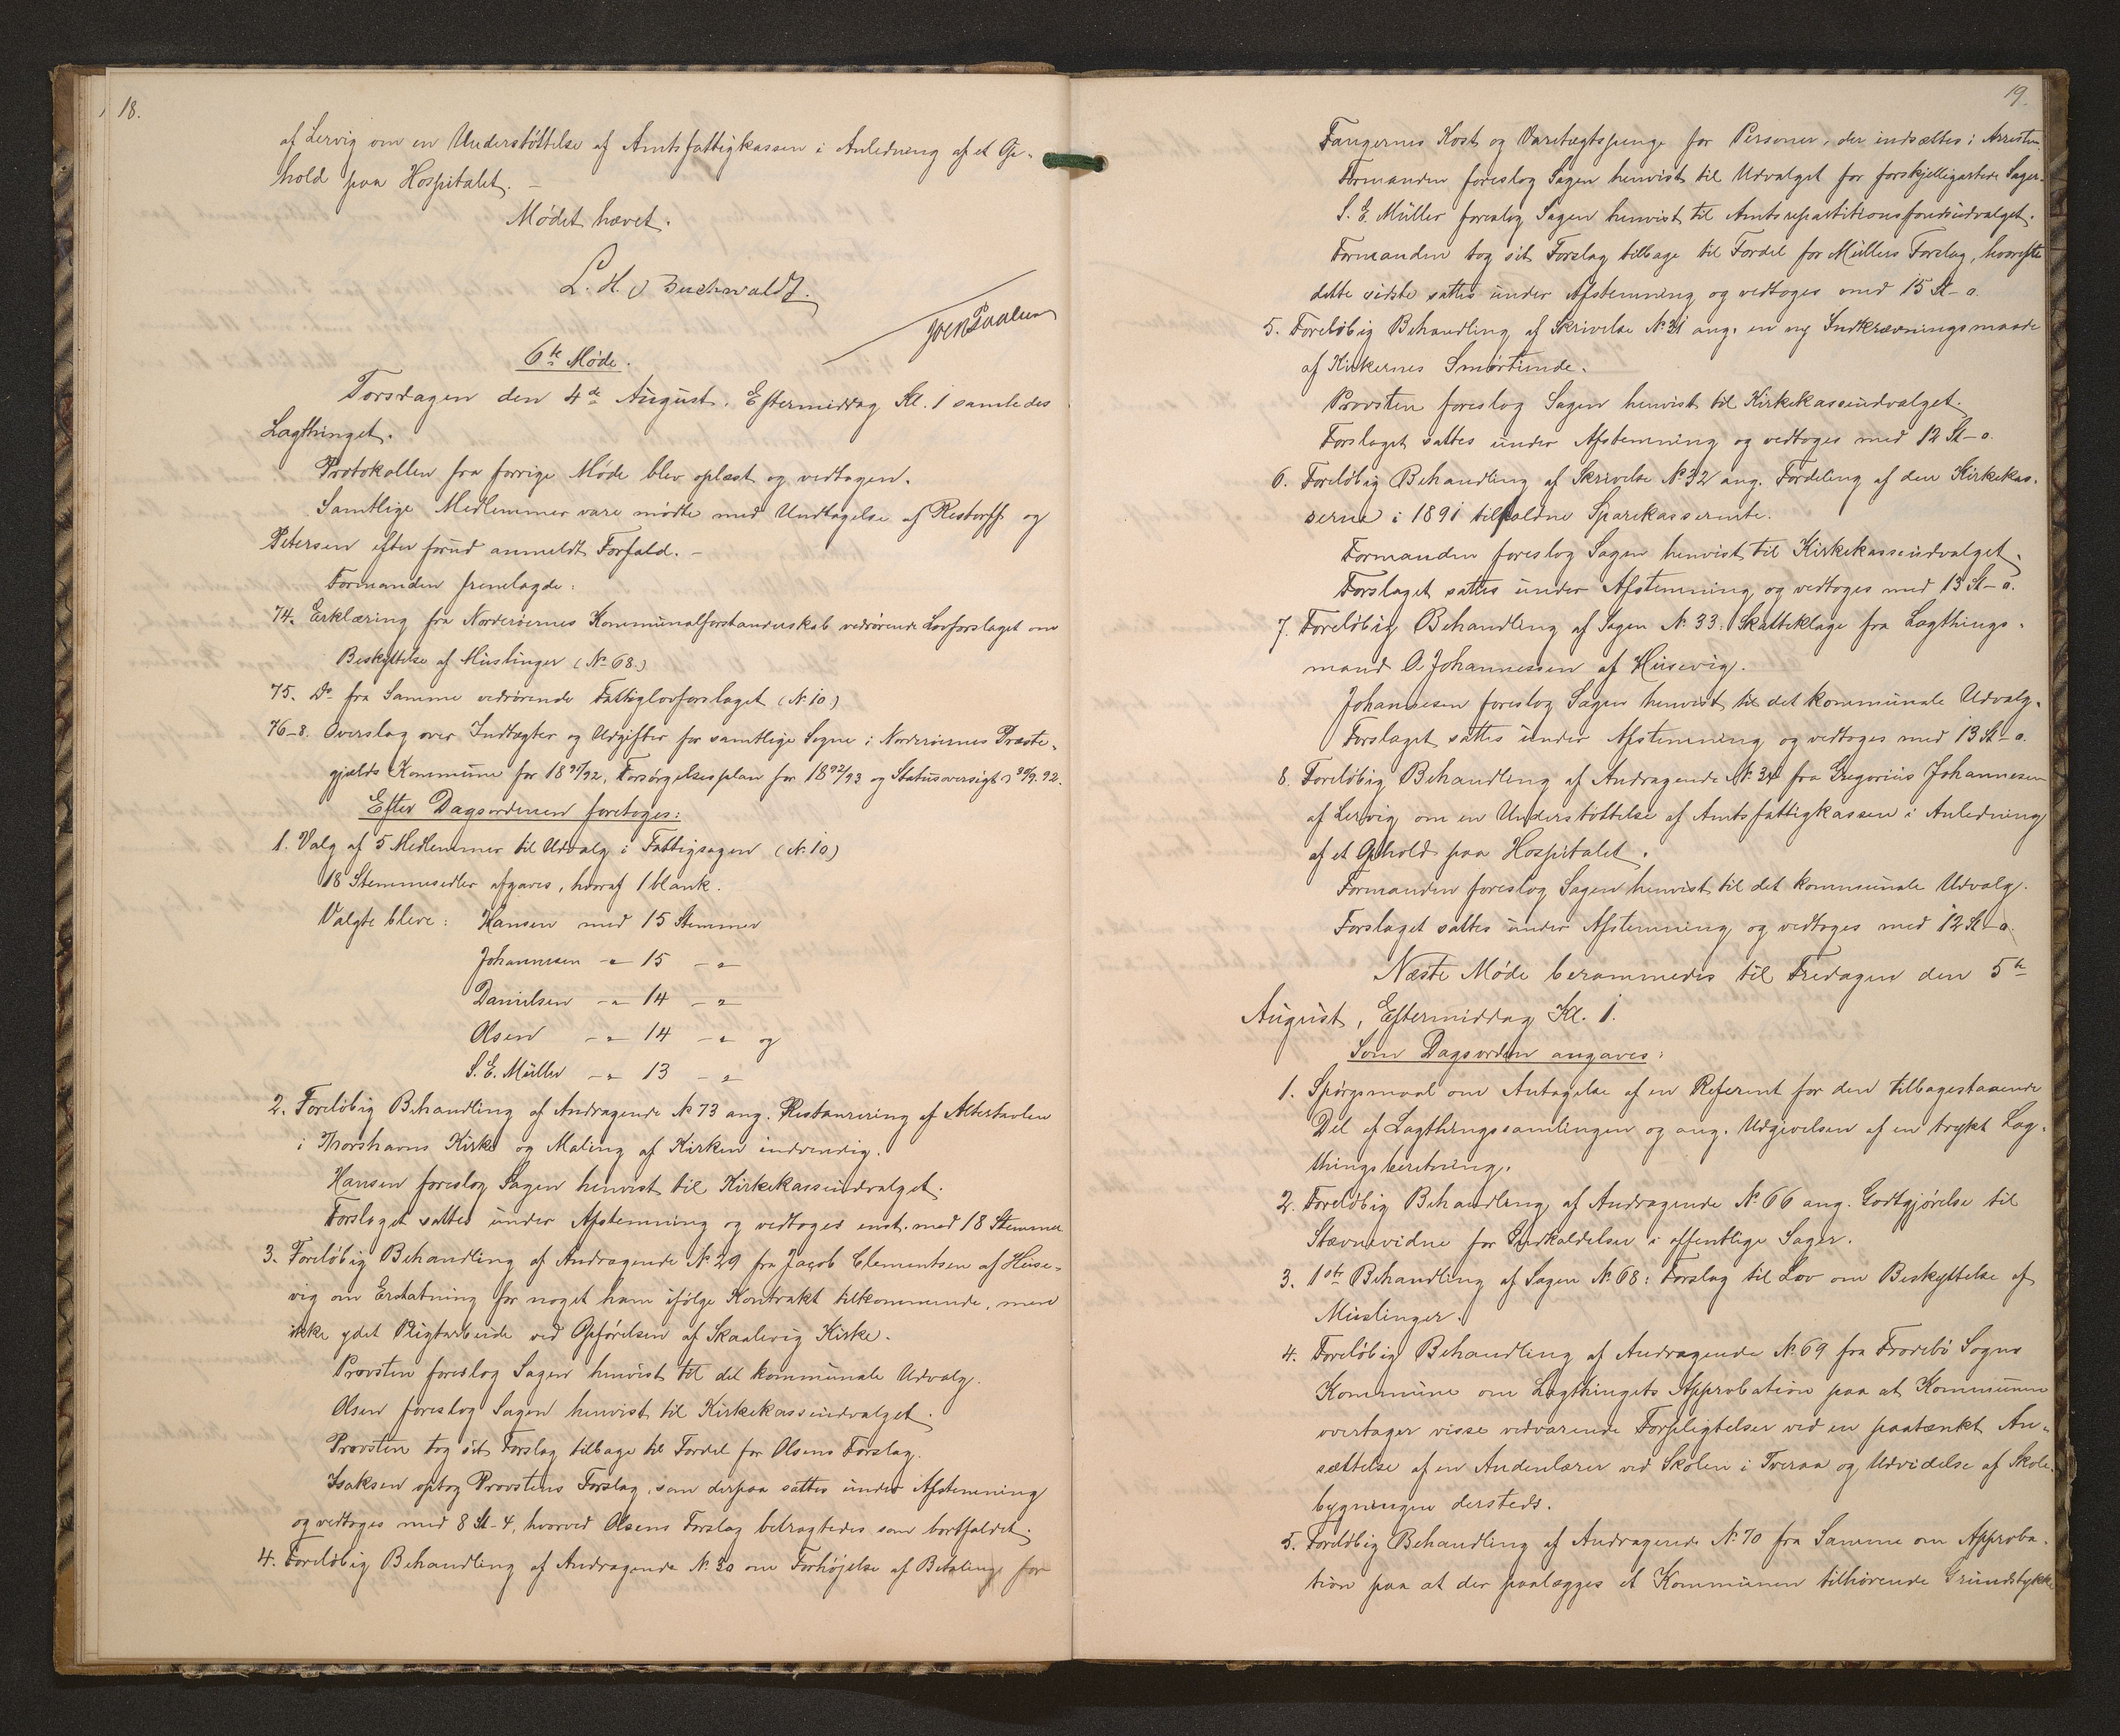 18.
af Lervig om en Understøttelse af Amtsfattigkassen i Anledning af et Op-
hold paa Hospitalet. –
Mødet hævet.
L. H. Buchwaldt.
6te Møde.
Torsdagen den 4de August, Eftermiddag Kl. 1 samledes
Lagthinget.
Protokollen fra forrige Møde blev oplæst og vedtagen.
Samtlige Medlemmer vare mødte med Undtagelse af Restorff og
Petersen efter forud anmeldt Forfald. –
Formanden fremlagde:
74. Erklæring fra Norderøernes Kommunalforstanderskab vedrørende Lovforslaget om
Beskyttelse af Muslinger (No 68.)
75. Do fra Samme vedrørende Fattiglovforslaget (N. 10)
76–8. Overslag over Indtægter og Udgifter for samtlige Sogne i Norderøernes Præste-
gjælds Kommune for 1891/92, Forsørgelsesplan for 1892/93 og Statusoversigt 30/9. 92.
Efter Dagsordenen foretoges:
1. Valg af 5 Medlemmer til Udvalg i Fattigsagen (N. 10)
18 Stemmesedler afgaves, hvoraf 1 blank.
Valgte bleve: Hansen med 15 Stemmer
Johannesen –"– 15 –"
Danielsen –"– 14 –"
Olsen –"– 14 –" og
S. E. Müller –"– 13 –"
2. Foreløbig Behandling af Andragende No 73 ang. Restaurering af Altertavlen
i Thorshavns Kirke og Maling af Kirken indvendig.
Hansen foreslog Sagen henvist til Kirkekasseudvalget.
Forslaget sattes under Afstemning og vedtoges enst. med 18 Stemmer
3. Foreløbig Behandling af Andragende No 29 fra Jacob Clementsen af Huse-
vig om Erstatning for noget ham ifølge Kontrakt tilkommende, men
ikke ydet Pligtarbeide ved Opførelsen af Skaalevig Kirke.
Provsten foreslog Sagen henvist til det kommunale Udvalg.
Olsen foreslog Sagen henvist til Kirkekasseudvalget.
Provsten tog sit Forslag tilbage til Fordel for Olsens Forslag.
Isaksen optog Provstens Forslag, som derpaa sattes under Afstemning
og vedtoges med 8 St–4, hvorved Olsens Forslag betragtedes som bortfaldet.
4. Foreløbig Behandling af Andragende N. 30 om Forhøjelse af Betaling for
19.
Fangernes Kost og Varetægtspenge for Personer, der indsættes i Arresten.
Formanden foreslog Sagen henvist til Udvalget for forskjelligartede Sager.
S. E. Müller foreslog Sagen henvist til Amtsrepartitionsfondsudvalget.
Formanden tog sit Forslag tilbage til Fordel for Müllers Forslag, hvorefter
dette sidste sattes under Afstemning og vedtoges med 15 St–0.
5. Foreløbig Behandling af Skrivelse No 31 ang. en ny Indkrævningsmaade
af Kirkernes Smørtiende.
Provsten foreslog Sagen henvist til Kirkekasseudvalget.
Forslaget sattes under Afstemning og vedtoges med 12 St–0.
6. Foreløbig Behandling af Skrivelse No 32 ang. Fordeling af den Kirkekas-
serne i 1891 tilfaldne Sparekasserente.
Formanden foreslog Sagen henvist til Kirkekasseudvalget.
Forslaget sattes under Afstemning og vedtoges med 13 St–0.
7. Foreløbig Behandling af Sagen N. 33: Skatteklage fra Lagthings-
mand O. Johannessen af Husevig.
Johannesen foreslog Sagen henvist til det kommunale Udvalg.
Forslaget sattes under Afstemning og vedtoges med 13 St–0.
8. Foreløbig Behandling af Andragende N. 34 fra Gregorius Johannesen
af Lervig om en Understøttelse af Amtsfattigkassen i Anledning
af et Ophold paa Hospitalet.
Formanden foreslog Sagen henvist til det kommunale Udvalg.
Forslaget sattes under Afstemning og vedtoges med 12 St–0.
Næste Møde berammedes til Fredagen den 5te
August, Eftermiddag Kl. 1.
Som Dagsorden angaves:
1. Spørgsmaal om Antagelse af en Referent for den tilbagestaaende
Del af Lagthingssamlingen og ang. Udgivelsen af en trykt Lag-
thingsberetning.
2. Foreløbig Behandling af Andragende No 66 ang. Godtgjørelse til
Stævnevidne for Indkaldelser i offentlige Sager.
3. 1ste Behandling af Sagen No 68: Forslag til Lov om Beskyttelse af
Muslinger.
4. Foreløbig Behandling af Andragende No 69 fra Frodebø Sogns
Kommune om Lagthingets Approbation paa at Kommunen
overtager visse vedvarende Forpligtelser ved en paatænkt An-
sættelse af en Andenlærer ved Skolen i Tveraa og Udvidelse af Skole-
bygningen dersteds.
5. Foreløbig Behandling af Andragende No 70 fra Samme om Approba-
tion paa at der paalægges et Kommunen tilhørende Grundstykke